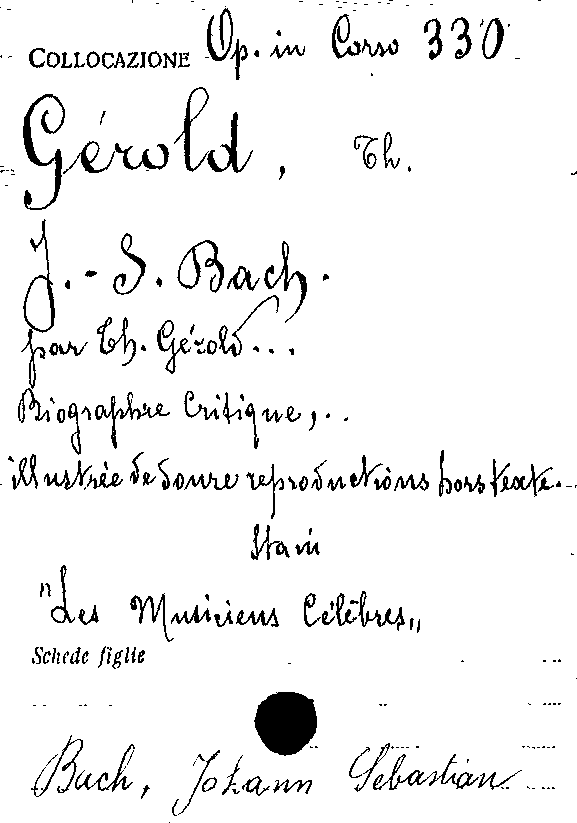 COLLOCAZIONE Op. in Corso 330
Gérold, Th.
J.-S. Bach.
par Th. Gérold...
Biographie Critique,..
illustrée de douze reproductions hors texte.
Sta in
"Les Musiciens Célèbres„
Schede figlie
Bach, Johann Sebastian